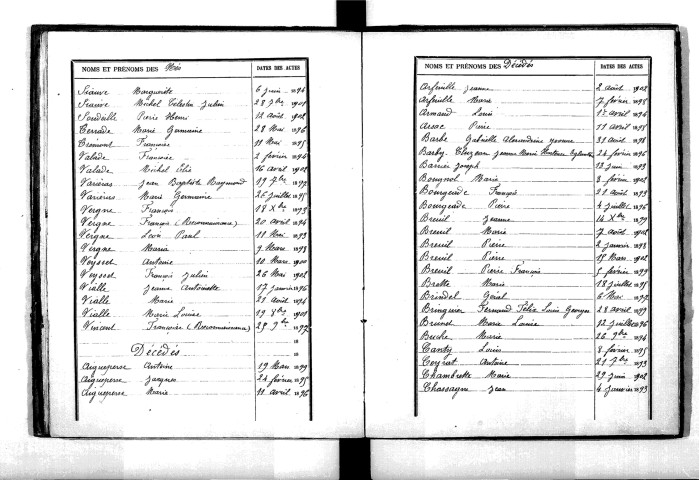 NOMS ET PRÉNOMS DES Nés DATES DES ACTES
Siauve Marguerite 6 juin 1894
Siauve Michel Celestin Julien 28 7bre 1901
Soudeille Pierre Henri 12 août 1902
Terrade Marie Germaine 28 Mai 1896
Trémont Françoise 11 Mai 1895
Valade Françoise 2 février 1894
Valade Michel Elie 16 avril 1902
Jean Baptiste Raymond 19 7bre 1897
Marie Germaine 26 juillet 1895
Vergne François 18 Xbre 1893
Vergne François (Reconnaissance) 20 avril 1894
Vergne Léon Paul 11 Mai 1893
Vergne Maria 9 Mars 1898
Veysset Antoine 10 Mars 1900
Veysset François Julien 26 Mai 1902
Vialle Jeanne Antoinette 17 janvier 1896
Vialle Marie 21 août 1894
Vialle Marie Louise 19 Xbre 1901
Vincent Françoise (Reconnaissance) 29 9bre 1897
18
Décédés. 18
Aigueperse Antoine 19 Mars 1899
Aigueperse Jacques 24 février 1895
Aigueperse Marie 11 avril 1896
NOMS ET PRÉNOMS DES Décédés DATES DES ACTES
Arfeuille Jeanne 2 août 1902
Arfeuille Marie 7 février 1898
Armand Louis 1er avril 1894
Arsac Pierre 11 avril 1898
Barbe Gabrielle Alexandrine Yvonne 31 août 1898
Barby Jeanne Marie 24 février 1896
Barrier Joseph 13 juin 1893
Bougnol Marie 8 février 1902
Bourgeade François 21 août 1893
Bourgeade Pierre 4 juillet 1896
Breuil Jeanne 14 Xbre 1899
Breuil Marie 7 août 1902
Breuil Pierre 2 janvier 1898
Breuil Pierre 18 Mars 1902
Breuil Pierre François 5 février 1899
Brette Marie 18 juillet 1895
Brindel Géral 6 Mai 1897
Bringuier Fernand Félix Louis Georges 28 avril 1899
Brunet Marie Louise 12 juillet 1896
Buche Marie 26 9bre 1894
Canty Louis 8 février 1895
Ceyrat Antoine 21 7bre 1893
Chambrette Marie 29 juin 1902
Chassagne Jean 4 janvier 1893